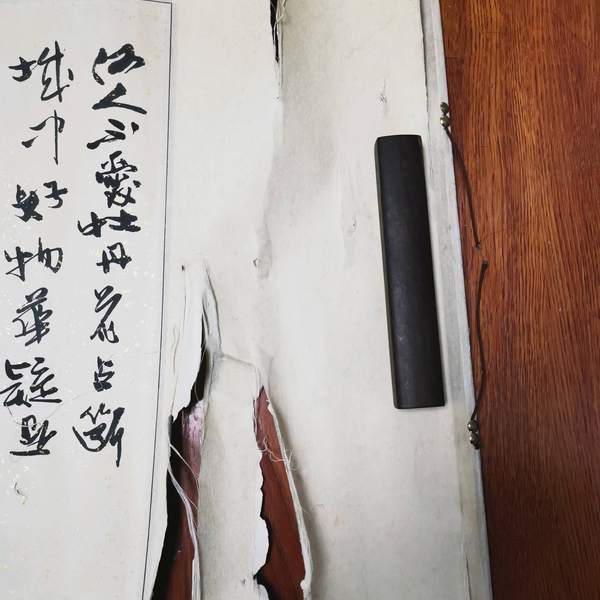 何人不愛牡丹花占斷
城中好物華疑是